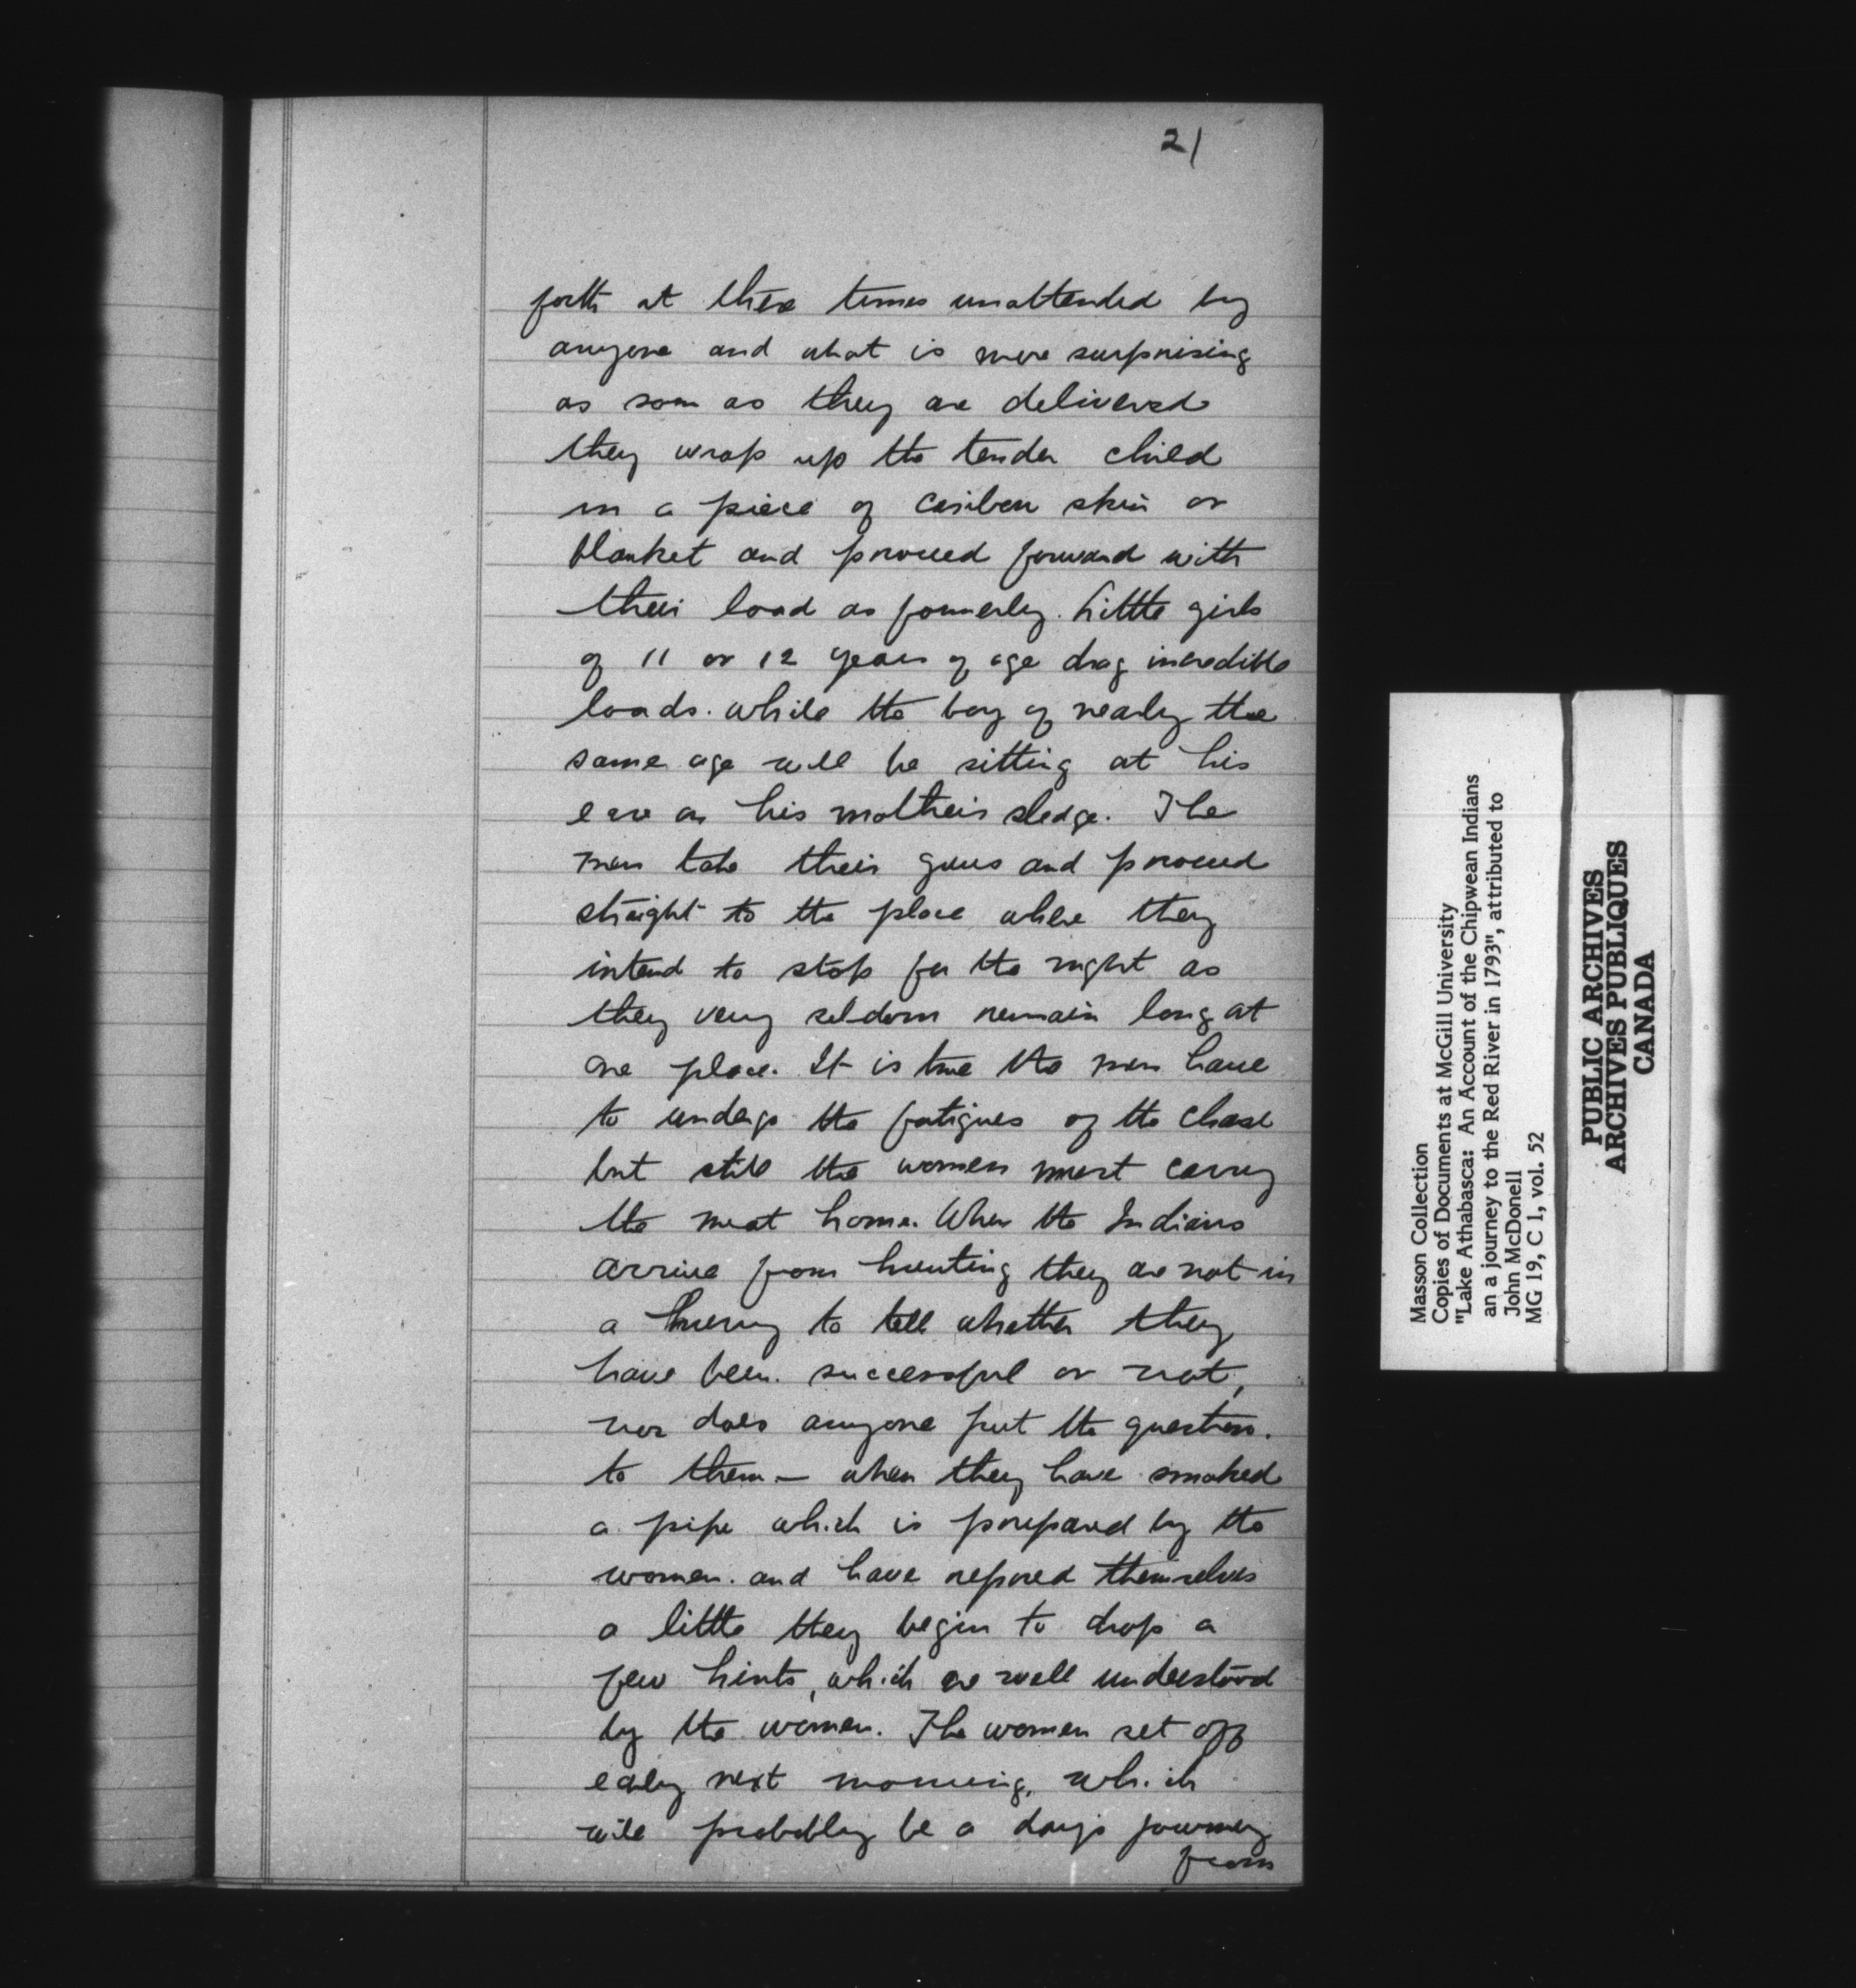 21
forth at these times unattended by
anyone and what is more surprising
as soon as they are delivered
they wrap up the tender child
in a piece of caribou skin or
blanket and proceed forward with
their load as formerly. Little girls
of 11 or 12 years of age drag incredible
loads. while the boy of nearly the
same age will be sitting at his
ease on his mother's sledge. The
men take their guns and proceed
straight to the place where they
intend to stop for the night as
they very seldom remain long at
one place. It is true the men have
to undergo the fatigues of the chase
but still the women must carry
the meat home. When the Indians
arrive from hunting they are not in
a hurry to tell whether they
have been successful or not,
nor does anyone put the question.
to them — when they have smoked
a pipe which is prepared by the
women. and have reposed themselves
a little they begin to drop a
few hints, which are well understood
by the women. The women set off
early next morning, which
will probably be a day's journey
from
Masson Collection
Copies of Documents at McGill University
"Lake Athabasca: An Account of the Chipwean Indians
an a journey to the Red River in 1793", attributed to
John McDonell
MG 19, C 1, vol. 52
PUBLIC ARCHIVES
ARCHIVES PUBLIQUES
CANADA